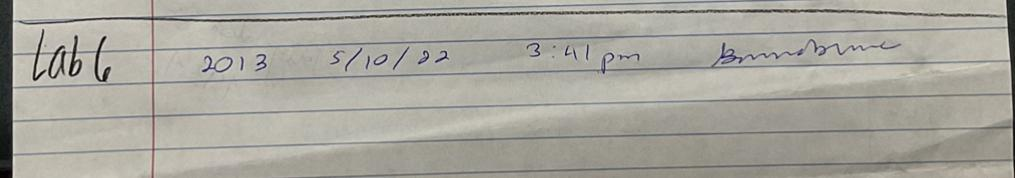 Lab 6 2013 5/10/22 3:41 pm